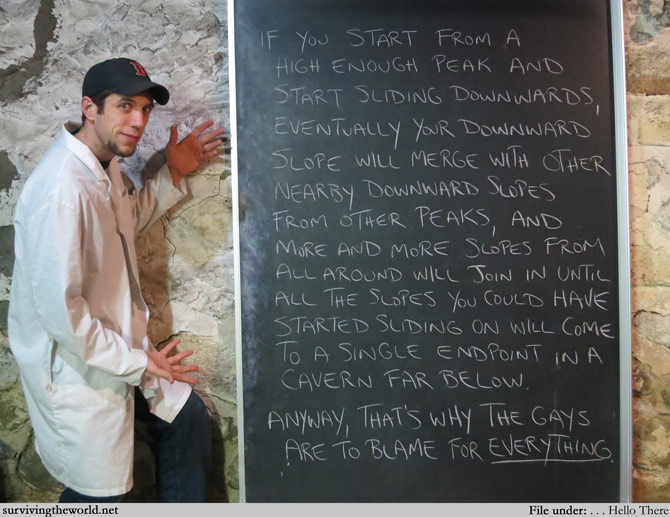 IF YOU START FROM A
HIGH ENOUGH PEAK AND
START SLIDING DOWNWARDS,
EVENTUALLY YOUR DOWNWARD
SLOPE WILL MERGE WITH OTHER
NEARBY DOWNWARD SLOPES
FROM OTHER PEAKS, AND
MORE AND MORE SLOPES FROM
ALL AROUND WILL JOIN IN UNTIL
ALL THE SLOPES YOU COULD HAVE
STARTED SLIDING ON WILL COME
TO A SINGLE ENDPOINT IN A
CAVERN FAR BELOW.
ANYWAY, THAT'S WHY THE GAYS
ARE TO BLAME FOR EVERYTHING.
survivingtheworld.net
File under: . . . Hello There